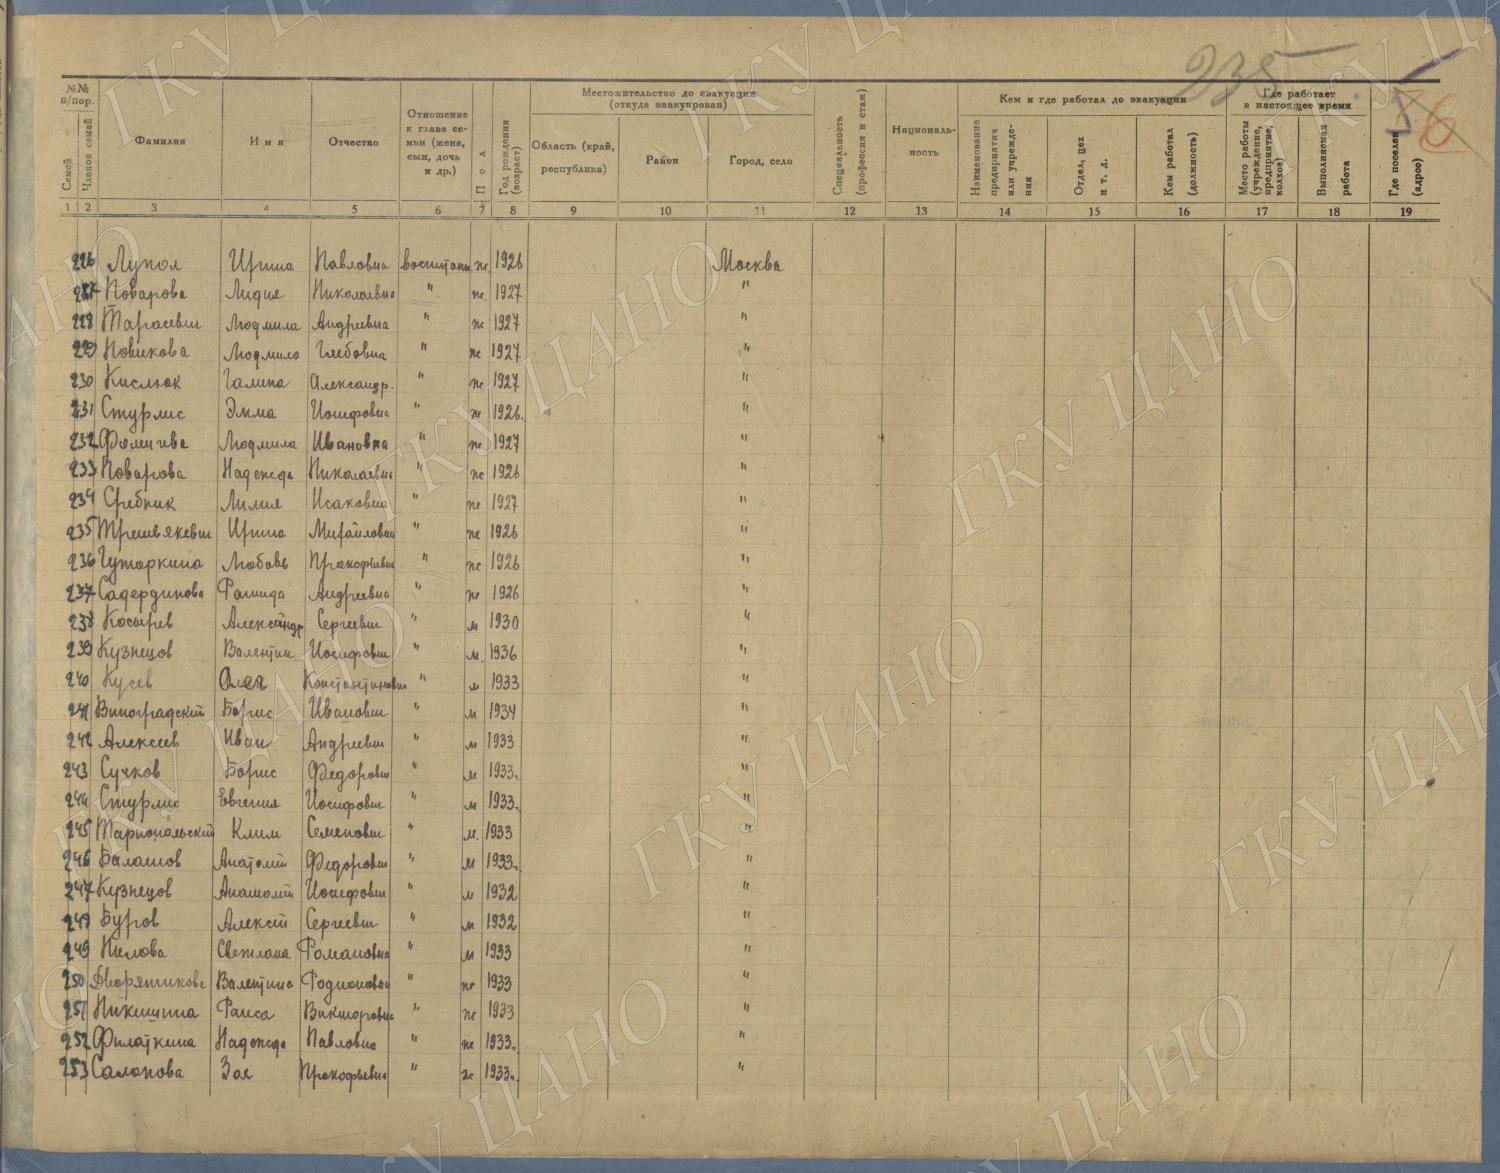 235
76
№№ п/пор.
Семей
Членов семей
Фамилия
Имя
Отчество
Отношение к главе семьи (жена, сын, дочь и др.)
Пол
Год рождения (возраст)
Местожительство до эвакуации (откуда эвакуирован)
Область (край, республика)
Район
Город, село
Специальность (профессия и стаж)
Националь-ность
Кем и где работал до эвакуации
Наименование предприятия или учрежде-ния
Отдел, цех и т. д.
Кем работал (должность)
Где работает в настоящее время
Место работы (учреждение, предприятие, колхоз)
Выполняемая работа
Где поселен (адрес)
1 2 3 4 5 6 7 8 9 10 11 12 13 14 15 16 17 18 19
226 Лупол Ирина Павловна воспитан. ж. 1926 Москва
227 Поварова Лидия Николаевна " ж. 1927 "
228 Тарасевич Людмила Андреевна " ж 1927 "
229 Новикова Людмила Глебовна " ж 1927 "
230 Кислюк Галина Александр. " ж 1927 "
231 Стурлис Эмма Иосифовна " ж 1926. "
232 Фомичева Людмила Ивановна " ж 1927 "
233 Поварова Надежда Николаевна " ж 1926 "
234 Сребник Лилия Исаковна " ж 1927 "
235 Ирина Михайловна " ж 1926 "
236 Гутаркина Любовь Прокофьевна " ж 1926 "
237 Садердинова Рашида Андреевна " ж 1926 "
238 Косырев Александр Сергеевич " м 1930 "
239 Кузнецов Валентин Иосифович " м. 1936 "
240 Кусев Олег Константинович " м 1933 "
241 Виноградский Борис Иванович " м 1934 "
242 Алексеев Иван Андреевич " м 1933 "
243 Сучков Борис Федорович " м 1933. "
244 Стурлис Евгения Иосифович " м 1933. "
245 Тарнопольский Клим Семенович " м. 1933 "
246 Балашов Анатолий Федорович " м 1933. "
247 Кузнецов Анатолий Иосифович " м 1932 "
248 Буров Алексей Сергеевич " м 1932 "
249 Пилова Светлана Романовна " м 1933 "
250 Дворятикова Валентина Родионовна " ж 1933 "
251 Никишина Раиса Викторовна " ж 1933 "
252 Филаткина Надежда Павловна " ж 1933. "
253 Салонова Зоя Прокофьевна " ж 1933. "
ГКУ ЦАНО